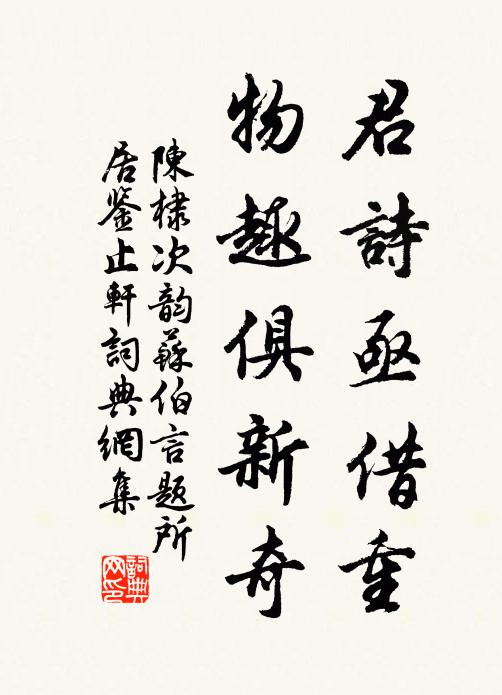 君詩亟借重
物趣俱新奇
陳棣次韵蘇伯言題所
居鉴止軒詞典網集
詞典
网印